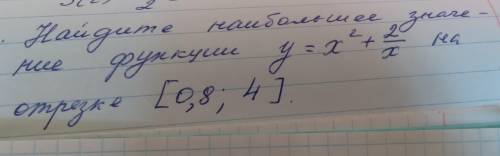 . Найдите наибольшее значе-
ние функции y = x² + 2/x на
отрезке [0,8; 4].